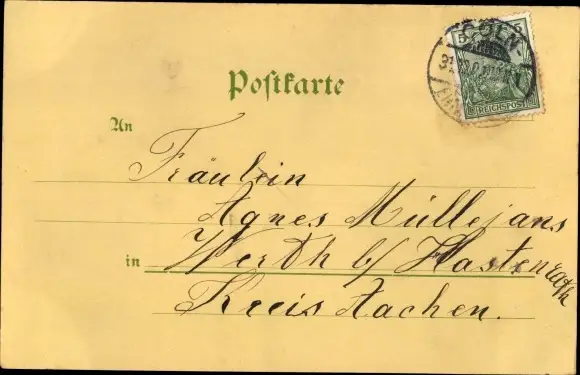 CÖLN
5 5
REICHSPOST
Postkarte
An
Fräulein
Agnes Müllejans
in Werth b/ Hastenrath
Kreis Aachen.